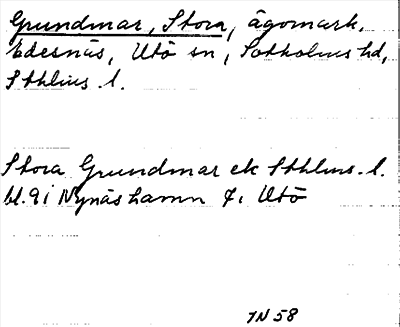 Grundmar, Stora, ägomark,
Edesnäs, Utö sn, Sotholms hd,
Sthlms l.
Stora Grundmar ek Sthlms l.
bl. 9 i Nynäshamn 7. Utö
JN 58